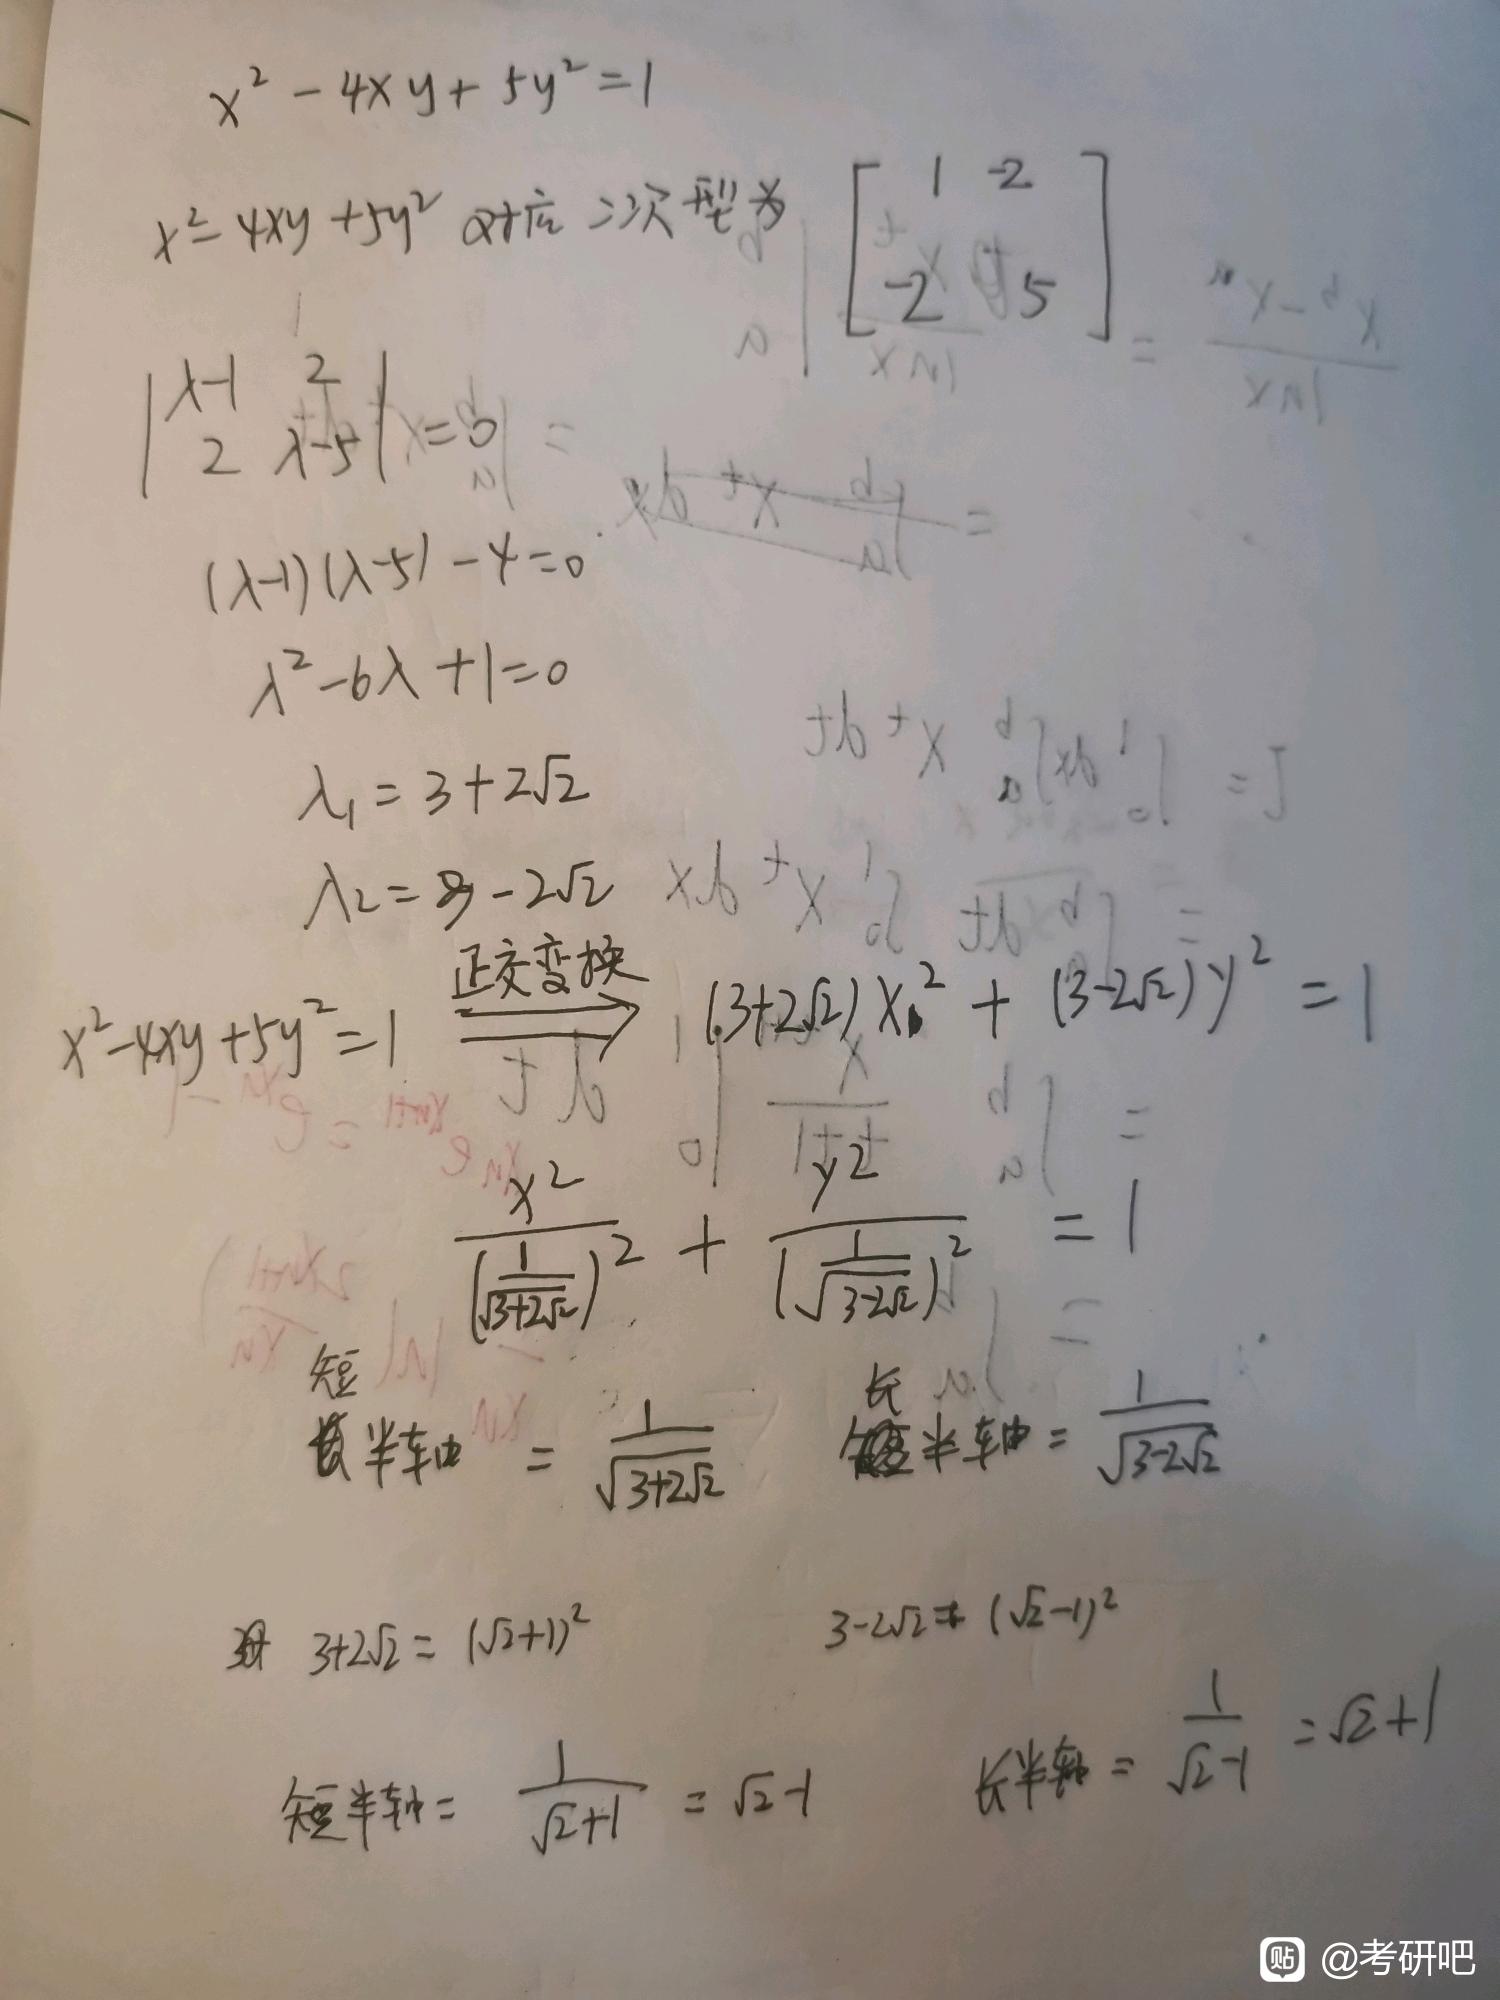 x² - 4xy + 5y² = 1
x² - 4xy + 5y² 对应二次型为 [1 -2
-2 5]
|λ-1 2
2 λ-5| = 0
(λ-1)(λ-5) - 4 = 0
λ² - 6λ + 1 = 0
λ₁ = 3 + 2√2
λ₂ = 3 - 2√2
x² - 4xy + 5y² = 1 正交变换⟹ (3+2√2)x² + (3-2√2)y² = 1
x²/(1/√(3+2√2))² + y²/(1/√(3-2√2))² = 1
短半轴 = 1/√(3+2√2) 长半轴 = 1/√(3-2√2)
3+2√2 = (√2+1)² 3-2√2 = (√2-1)²
短半轴 = 1/(√2+1) = √2-1 长半轴 = 1/(√2-1) = √2+1
贴 @考研吧